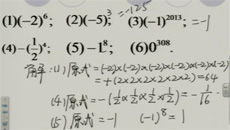 (1)(-2)⁶; (2)(-5)³; =-125 (3)(-1)²⁰¹³; =-1
(4)-(1/2)⁴; (5)-1⁸; (6)0³⁰⁸.
解:(1)原式=(-2)×(-2)×(-2)×(-2)×(-2)×(-2)
=+(2×2×2×2×2×2)=64
(4)原式=-(1/2×1/2×1/2×1/2)=-1/16
(5)原式=-1 (-1)⁸=1